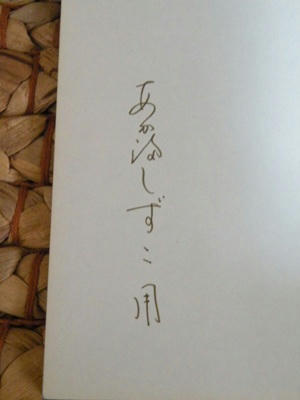 あかぬしずこ用